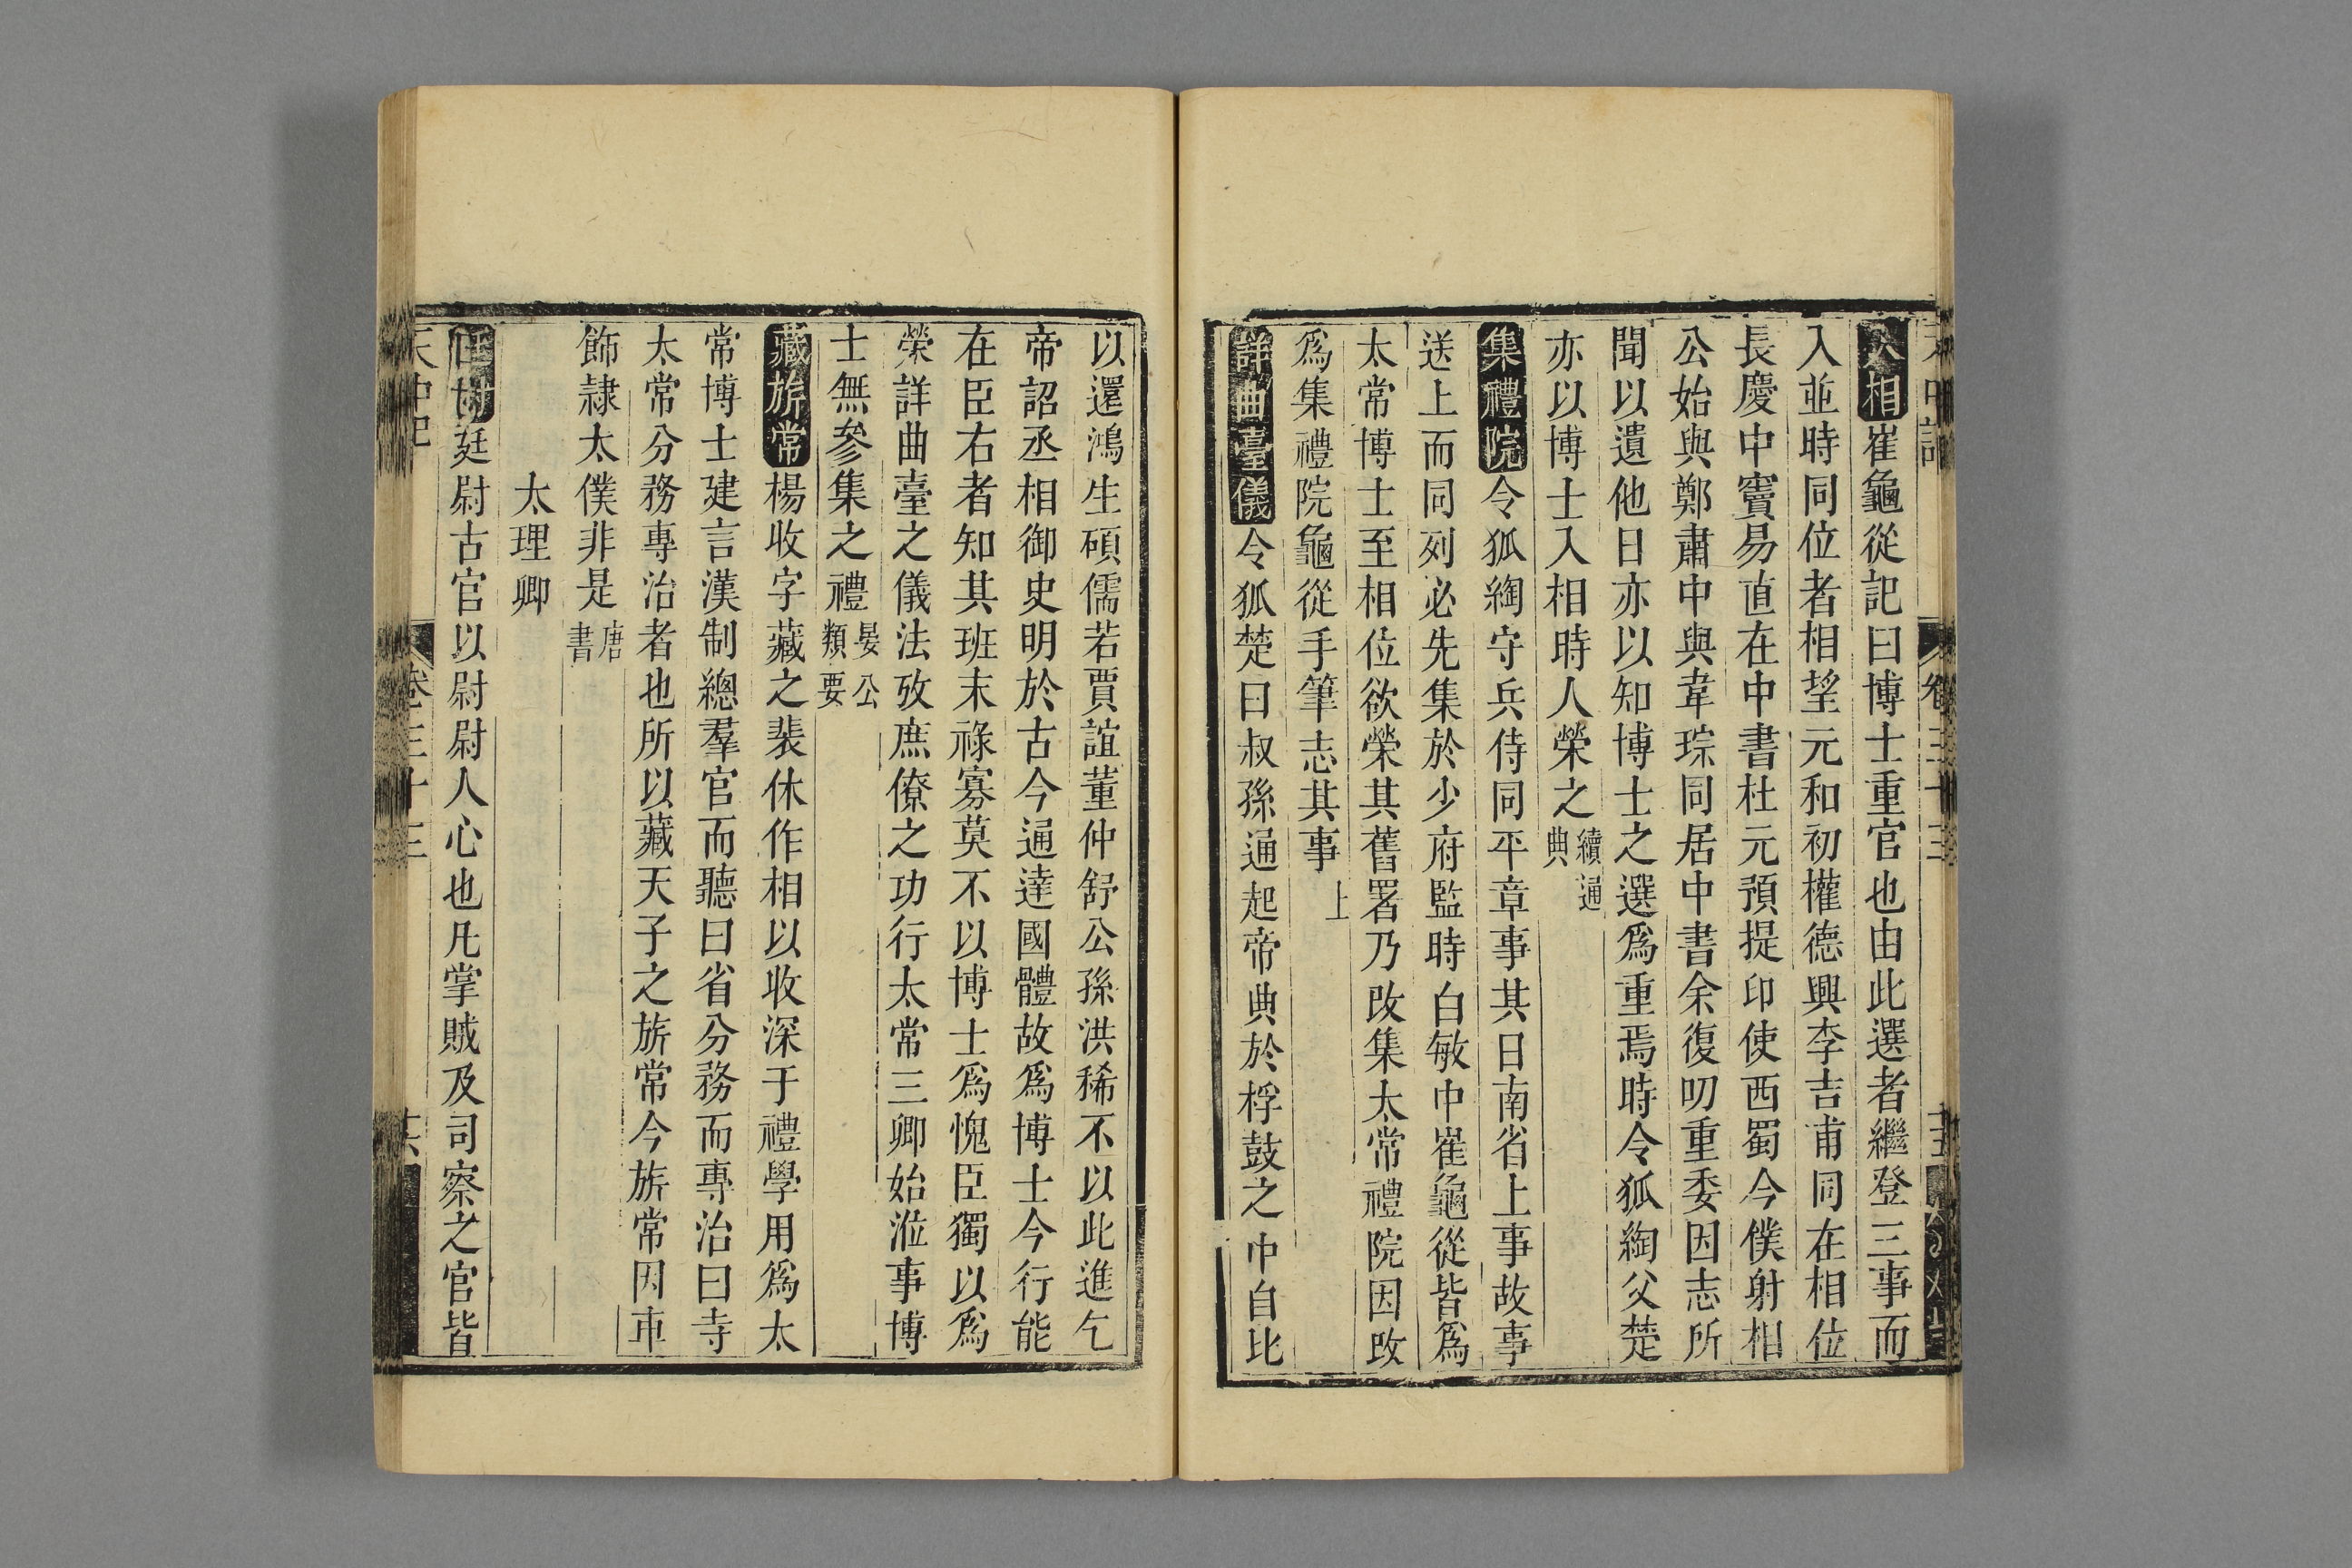 入相崔龜從記曰博士重官也由此選者繼登三事而
入並時同位者相望元和初權德興李吉甫同在相位
長慶中竇易直在中書杜元預提印使西蜀今僕射相
公始與鄭肅中與韋琮同居中書余復叨重委因志所
聞以遺他日亦以知博士之選爲重焉時令狐綯父楚
亦以博士入相時人榮之續通典
集禮院令狐綯守兵侍同平章事其日南省上事故事
送上而同列必先集於少府監時白敏中崔龜從皆爲
太常博士至相位欲榮其舊署乃改集太常禮院因改
爲集禮院龜從手筆志其事上
詳曲臺儀令狐楚曰叔孫通起帝典於桴鼓之中自比
以還鴻生碩儒若賈誼董仲舒公孫洪稀不以此進乞
帝詔丞相御史明於古今通達國體故爲博士今行能
在臣右者知其班末祿寡莫不以博士爲愧臣獨以爲
榮詳曲臺之儀法攷庶僚之功行太常三卿始涖事博
士無參集之禮晏公類要
藏旂常楊收字藏之裴休作相以收深于禮學用爲太
常博士建言漢制總羣官而聽曰省分務而專治曰寺
太常分務專治者也所以藏天子之旂常今旂常因車
飾隷太僕非是唐書
太理卿
廷尉古官以尉尉人心也凡掌賊及司察之官皆
天中記
卷三十三